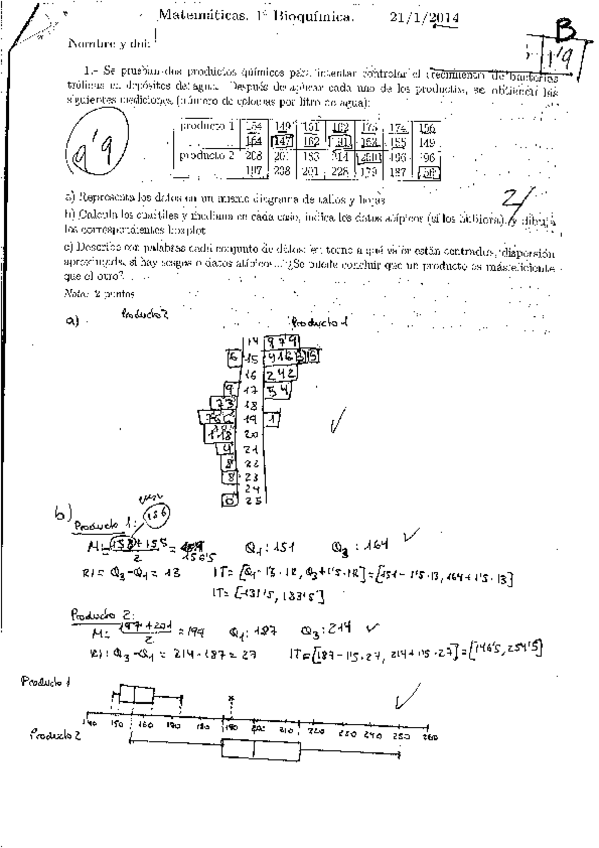 Matemáticas. 1º Bioquímica. 21/1/2014
B
1'9
Nombre y dni:
1.- Se prueban dos productos químicos para intentar controlar el crecimiento de bacterias
en depósitos de agua. Después de aplicar cada uno de los productos, se obtienen las
siguientes mediciones (número de colonias por litro de agua):
9'9
producto 1 154 149 151 162 175 174 156
164 147 162 191 153 155 149
producto 2 208 201 183 214 250 196 196
197 238 201 228 179 187 156
2/
a) Representa los datos en un mismo diagrama de tallos y hojas
b) Calcula los cuartiles y mediana en cada caso, indica los datos atípicos (si los hubiera) y dibuja
los correspondientes boxplot
c) Describe con palabras cada conjunto de datos: en torno a qué valor están centrados, dispersión
aproximada, si hay sesgos o datos atípicos... ¿Se puede concluir que un producto es más eficiente
que el otro?
Nota: 2 puntos
a) Producto 2 Producto 1
14 979
6 15
16 242
9 17 54
73 18
19 1
20
4 21
8 22
8 23
24
0 25
b) Producto 1: 156
M: = 156'5 Q1: 151 Q3: 164
RI = Q3-Q1 = 13 IT = [Q1 - 1'5·RI, Q3+1'5·RI] = [151-1'5·13, 164+1'5·13]
IT = [131'5, 183'5]
Producto 2:
M: 197+201/2 = 199 Q1: 187 Q3: 214
RI: Q3-Q1 = 214-187 = 27 IT = [187-1'5·27, 214+1'5·27] = [146'5, 254'5]
Producto 1
140 150 160 170 180 190 200 210 220 230 240 250 260
Producto 2